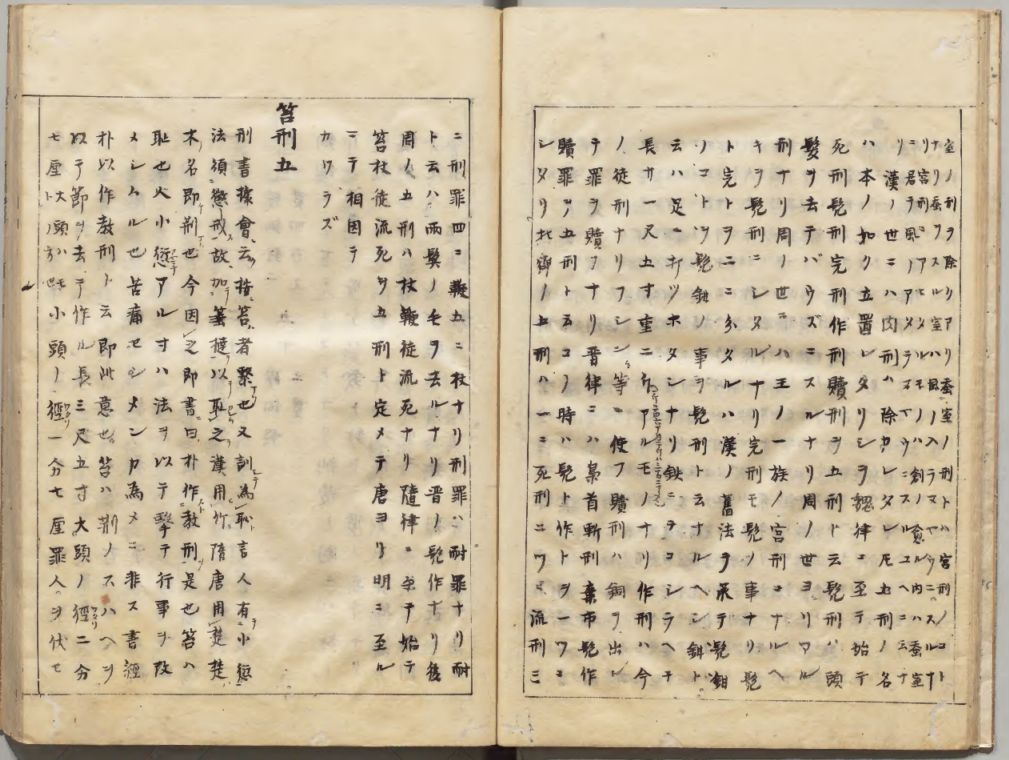 室ノ刑ヲ除クリアリ蚕室ノ刑トハ宮刑ノコト
ナリ蚕ヲスルル室ハ風ノ入ラヌヤウニスルナ
リ宮刑ニアフタルモノハ創ノ愈ル内ハ蚕室
ニ居テ風ニアタラヌヤウニスルユヘニ云ナ
リ漢ノ世ニハ肉刑ハ除カレタレ圧五刑ノ名
ハ本ノ如ク立置レタリシヲ魏律ニ至テ始テ
死刑髡刑完刑作刑贖刑ヲ五刑ト云髡刑ハ頭
髮ヲ去テバウズニスルナリ周ノ世ヨリアル
刑ナリ周ノ世ニハ王ノ一族ノ宮刑ニナルヘ
キヲ髡刑ニシタルナリ完刑モ髡ノ事ナリ髡
ト完トヲ二ニ分タルハ漢ノ舊法ヲ承テ髡鉗
ノコトヲ髡鉗ノ事ヲ髡刑ト云ナルヘシ鉗ト
云ハ足ニ
長サ一尺五寸重
ノ徒刑ナリフシン等ニ使フ贖刑ハ銅ヲ出シ
テ罪ヲ贖フナリ晋律ニハ梟首斬刑棄市髡作
贖罪ヲ五刑ト云コノ時ハ髡ト作トヲ一ツニ
シタリ北齊ノ上刑ハ一ニ死刑二ツニ流刑三
ニ刑罪四ニ鞭五ニ杖ナリ刑罪ハ耐罪ナリ耐
ト云ハ兩鬢ノ毛ヲ去ルナリ晋ノ髡作ナリ後
周ノ五刑ハ杖鞭徒流死ナリ隨律ニ至テ始テ
笞杖徒流死ヲ五刑ト定メテ唐ヨリ明ニ至ル
ニテ相因テ
カワラズ
笞刑五
刑書據會云按笞者擊也又訓為恥言人有小愆
法須懲戒故加箠撻以恥之漢用竹隋唐用楚楚
木名即荊也今因之即書曰朴作教刑是也笞ハ
恥也人小愆アル寸ハ法ヲ以テ擊テ行事ヲ改
メシムル也苦痛セシメンカ為メニ非ス書經
朴以作教刑ト云即此意也笞ハ荊ノスハヘヲ
以テ節ヲ去テ作ル長三尺五寸大頭ノ徑二分
七厘
小頭ノ徑一分七厘罪人ヲ伏セ